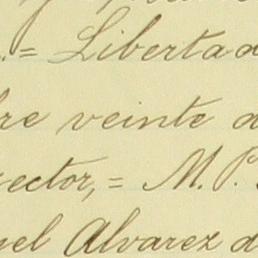 = Libertad
re veinte d
ector, = M. P.
uel Alvarez d